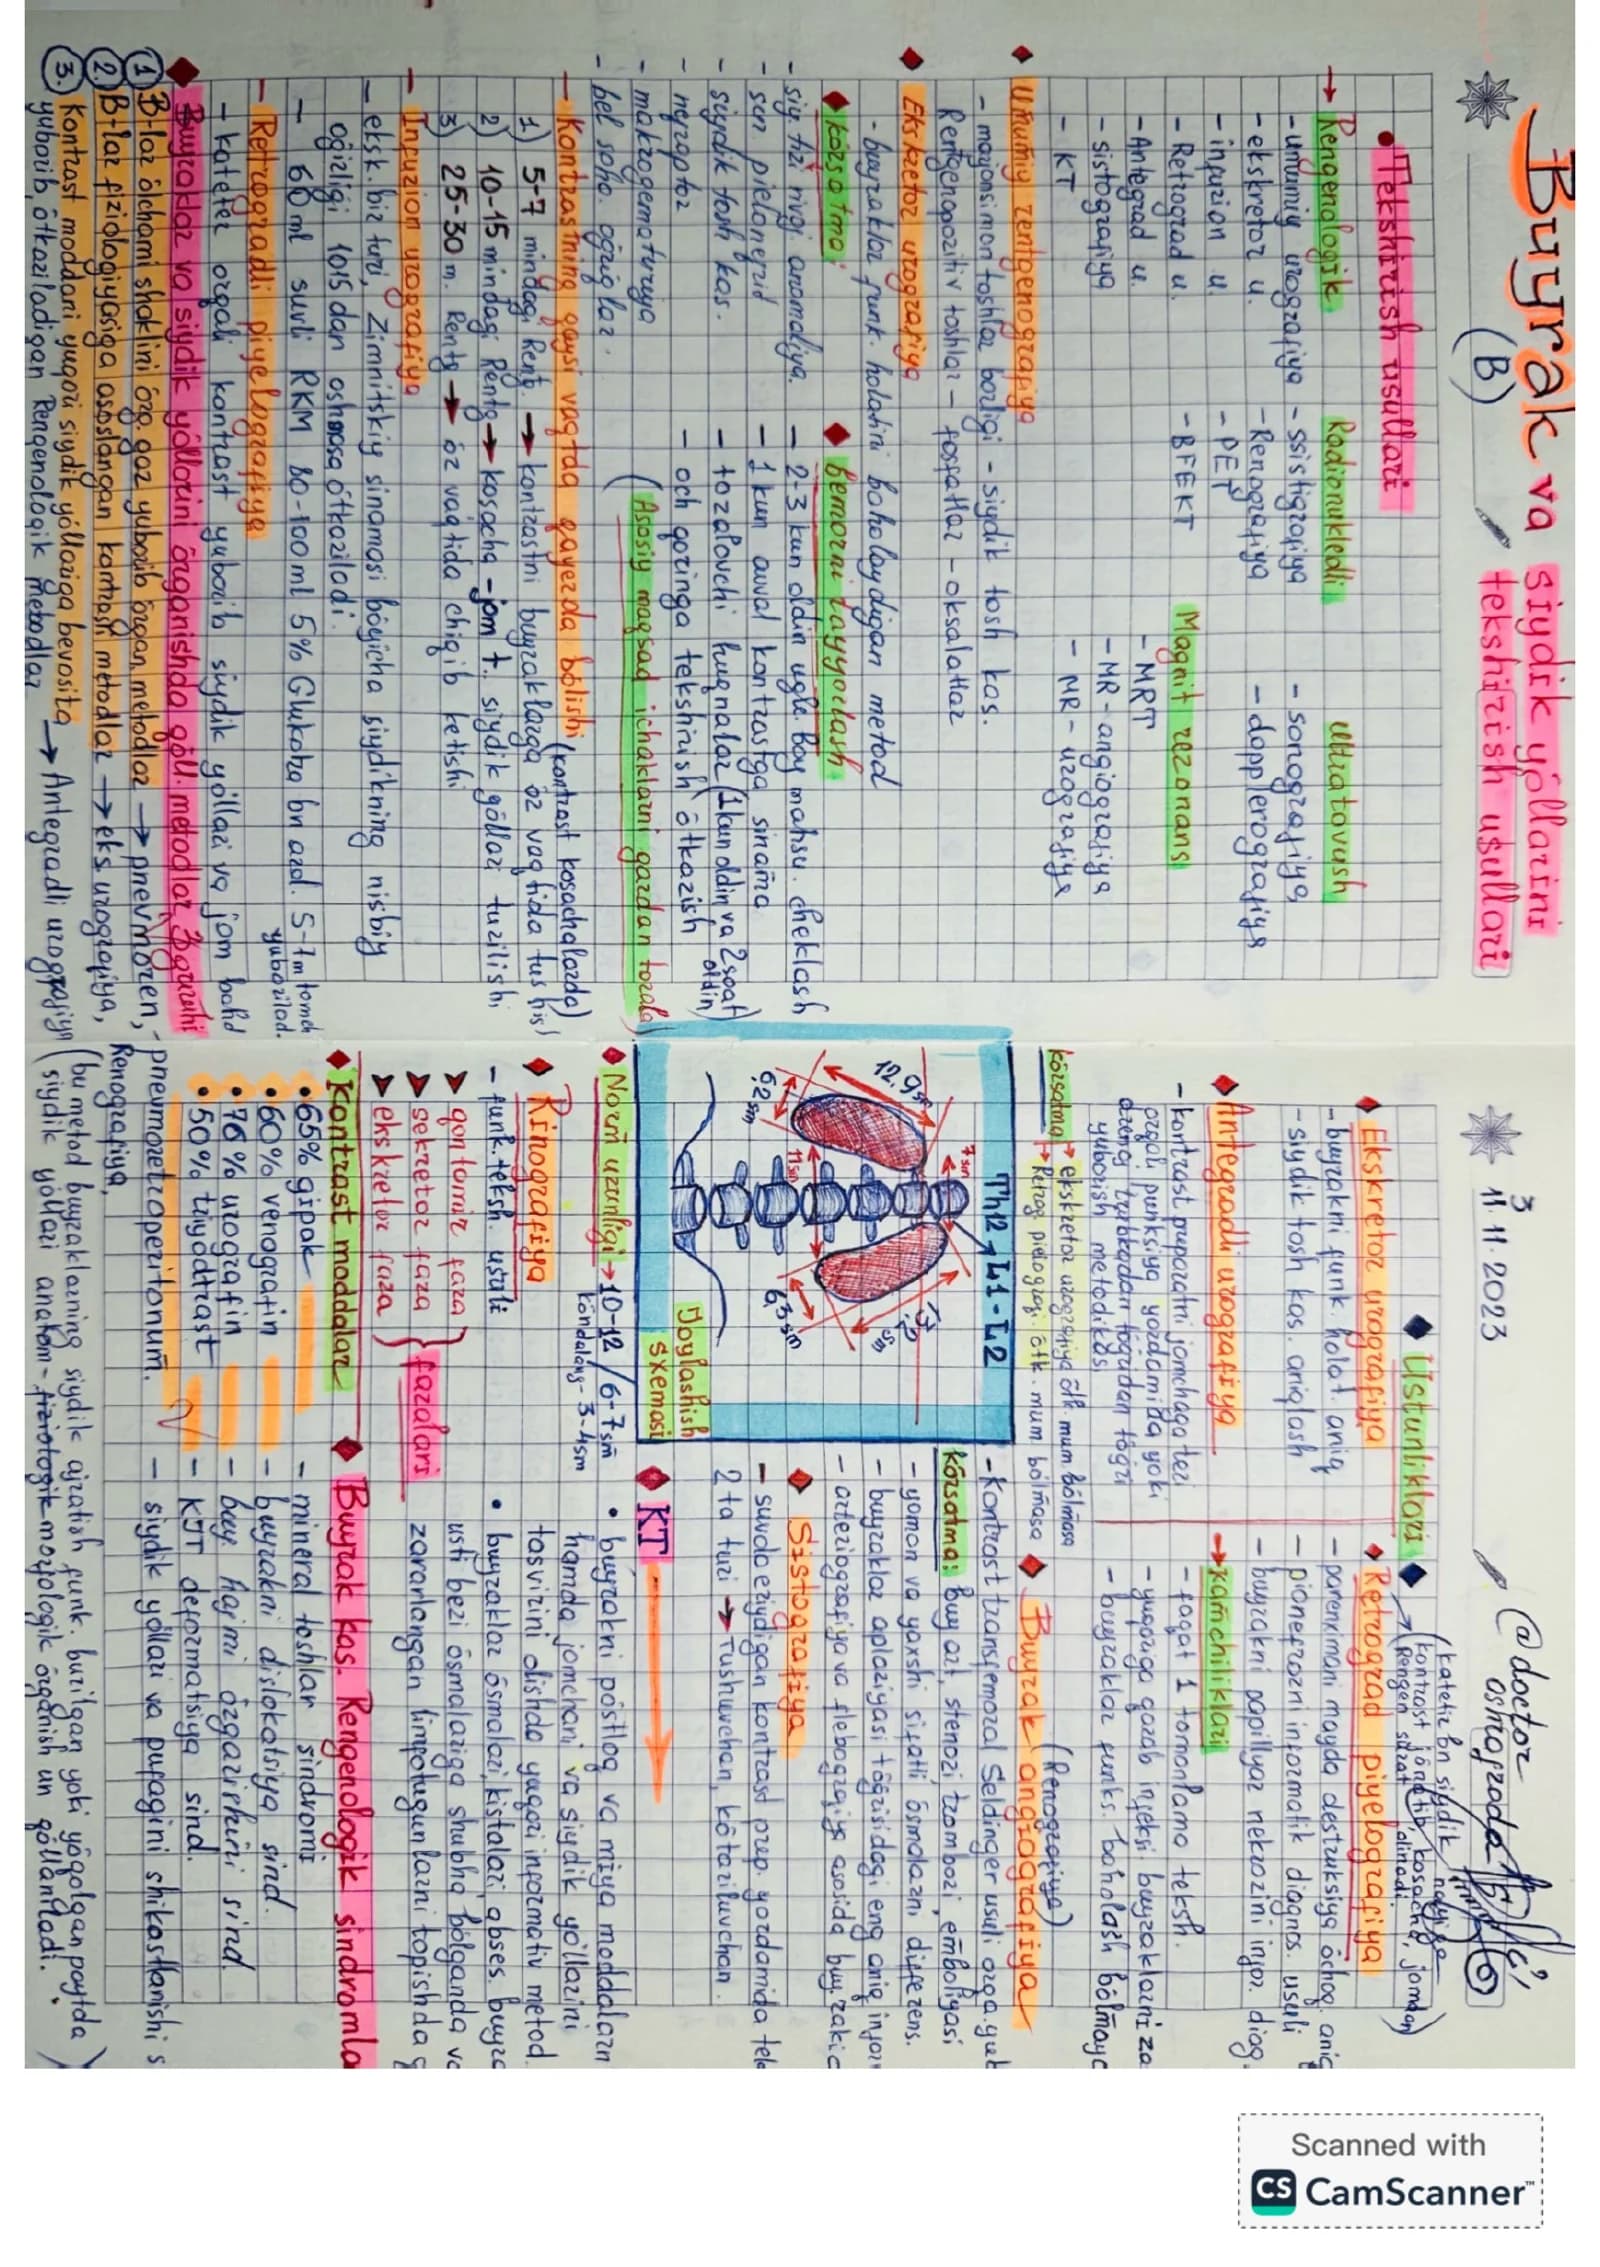 Buyrak va siydik yo'llarini
(B) tekshirish usullari
•Tekshirish usullari
→ Rengenologik
-umumiy urografiya
-ekskretor u.
-infuzion u.
-Retrograd u.
-Antegrad u.
-sistografiya
-KT
Radionukledli
-ssistigrafiya
-Renografiya
-PET
-BFEKT
ultratovush
-sonografiya
-dopplerografiya
Magnit rezonans
-MRT
-MR-angiografiya
-MR-urografiya
Umumiy rentgenografiya
-marjonsimon toshlar borligi -siydik tosh kas.
Rentgenopozitiv toshlar - fosfatlar -oksalatlar
Eksketor urografiya
-buyraklar funk. holatini baholaydigan metod
ko'rsatma:
-siy. tizi rivoj. anomaliya.
-sur. pielonefrid
-siydik tosh kas.
-nefroptoz
-makrogematuriya
-bel soha. og'riqlar.
Bemorni tayyorlash
-2-3 kun oldin ugle. boy mahsu. cheklash
-1 kun avval kontrastga sinama
-tozalovchi huqnalar (1 kun oldin va 2 soat oldin)
-och qoringa tekshirish o'tkazish
(Asosiy maqsad ichaklarni gazdan tozala)
-Kontrastning qaysi vaqtda qayerda bo'lishi (kontrast kosachalarda)
1) 5-7 mindagi Rent. → kontrastni buyraklarga o'z vaqtida tushishi
2) 10-15 mindagi Rentg → kosacha-jom t. siydik yo'llari tuzilishi
3) 25-30 m. Rentg → o'z vaqtida chiqib ketishi
-Infuzion urografiya
-eksk. bir turi, Zimnitskiy sinamasi bo'yicha siydikning nisbiy
og'irligi 1015 dan oshmasa o'tkaziladi.
- 60 ml suvli RKM 80-100 ml 5% Glukoza bn aral. 5-7m tomch yuborilad.
-Retrogradi piyelografiya
-kateter orqali kontrast yuborib siydik yo'llari va jom bahd
Buyraklar va siydik yo'llarini o'rganishda qo'll. metodlar 3 guruhi
① B-lar o'lchami shaklini o'rg. gaz yuborib o'rgan. metodlar → pnevmoren,
② B-lar fiziologiyasiga asoslangan kontrast metodlar → eks. urografiya,
③ Kontrast moddani yuqori siydik yo'llariga bevosita → Antegradi urografiya
yuborib, o'tkaziladigan Rengenologik metodlar
3
11.11.2023
@doctor
Ustunliklari
Ekskretor urografiya
-buyrakni funk. holat. aniq
-siydik tosh kas. aniqlash
Antegradli urografiya
-kontrast preparatni jomchaga teri
orqali punksiya yordamida yoki
drenaj trubkadan to'g'ridan to'g'ri
yuborish metodikasi
ko'rsatma → ekskretor urografiya o'tk. mum. bo'lmasa
→ Retrog. pielograf. o'tk. mum bo'lmasa
Retrograd piyelografiya
-parenximani mayda destruksiya o'chog. aniq
-pionefrozni informatik diagnos. usuli
-buyrakni papillyar nekrozini infor. diag.
→ kamchiliklari
-faqat 1 tomonlama teksh.
-yuqoriga qarab infeksi buyraklarni za
-buyraklar funks. baholash bo'lmayd
Buyrak angiografiya
(Renografiya)
-kontrast transfemoral Seldinger usuli orqa. yub
ko'rsatma: Buy art, stenozi, trombozi, emboliyasi
-yomon va yaxshi sifatli o'smalarni differens.
-buyraklar aplaziyasi to'g'risidagi eng aniq infor
-arteriografiya va flebografiya asosida buyrakic
Sistografiya
-suvda eriydigan kontrast prep. yordamida tek
2 ta turi → Tushuvchan, ko'tariluvchan.
Th12 → L1-L2
12,9 sm
7 sm
6,2 sm
11 sm
6,3 sm
Joylashish
sxemasi
Norm uzunligi → 10-12 / 6-7 sm
ko'ndalang- 3-4sm
Rinografiya
-funk. teksh. usuli
qontomir faza
sekretor faza
ekskretor faza
fazalari
Kontrast moddalar
•65% gipak
•60% venografin
•76% urografin
•50% triyodtrast
KT
•buyrakni po'stloq va miya moddalarn
hamda jomchani va siydik yo'llarini
tasvirini olishda yuqori informativ metod.
•buyraklar o'smalari, kistalari, abses. buyra
usti bezi o'smalariga shubha bo'lganda va
zararlangan limfotugunlarni topishda q
Buyrak kas. Rengenologik sindromla
-mineral toshlar sindromi
-buyrakni dislokatsiya sind.
-buy. hajmi o'zgarishini sind.
-KJT deformatsiya sind.
-siydik yo'llari va pufagini shikastlanishi s
pnevmoretroperitonum.
Renografiya,
(bu metod buyraklarning siydik ajratish funk. buzilgan yoki yo'qolgan paytda
siydik yo'llari anatom-fiziologik-morfologik o'rganish un qo'llaniladi.)
Scanned with
CS CamScanner™